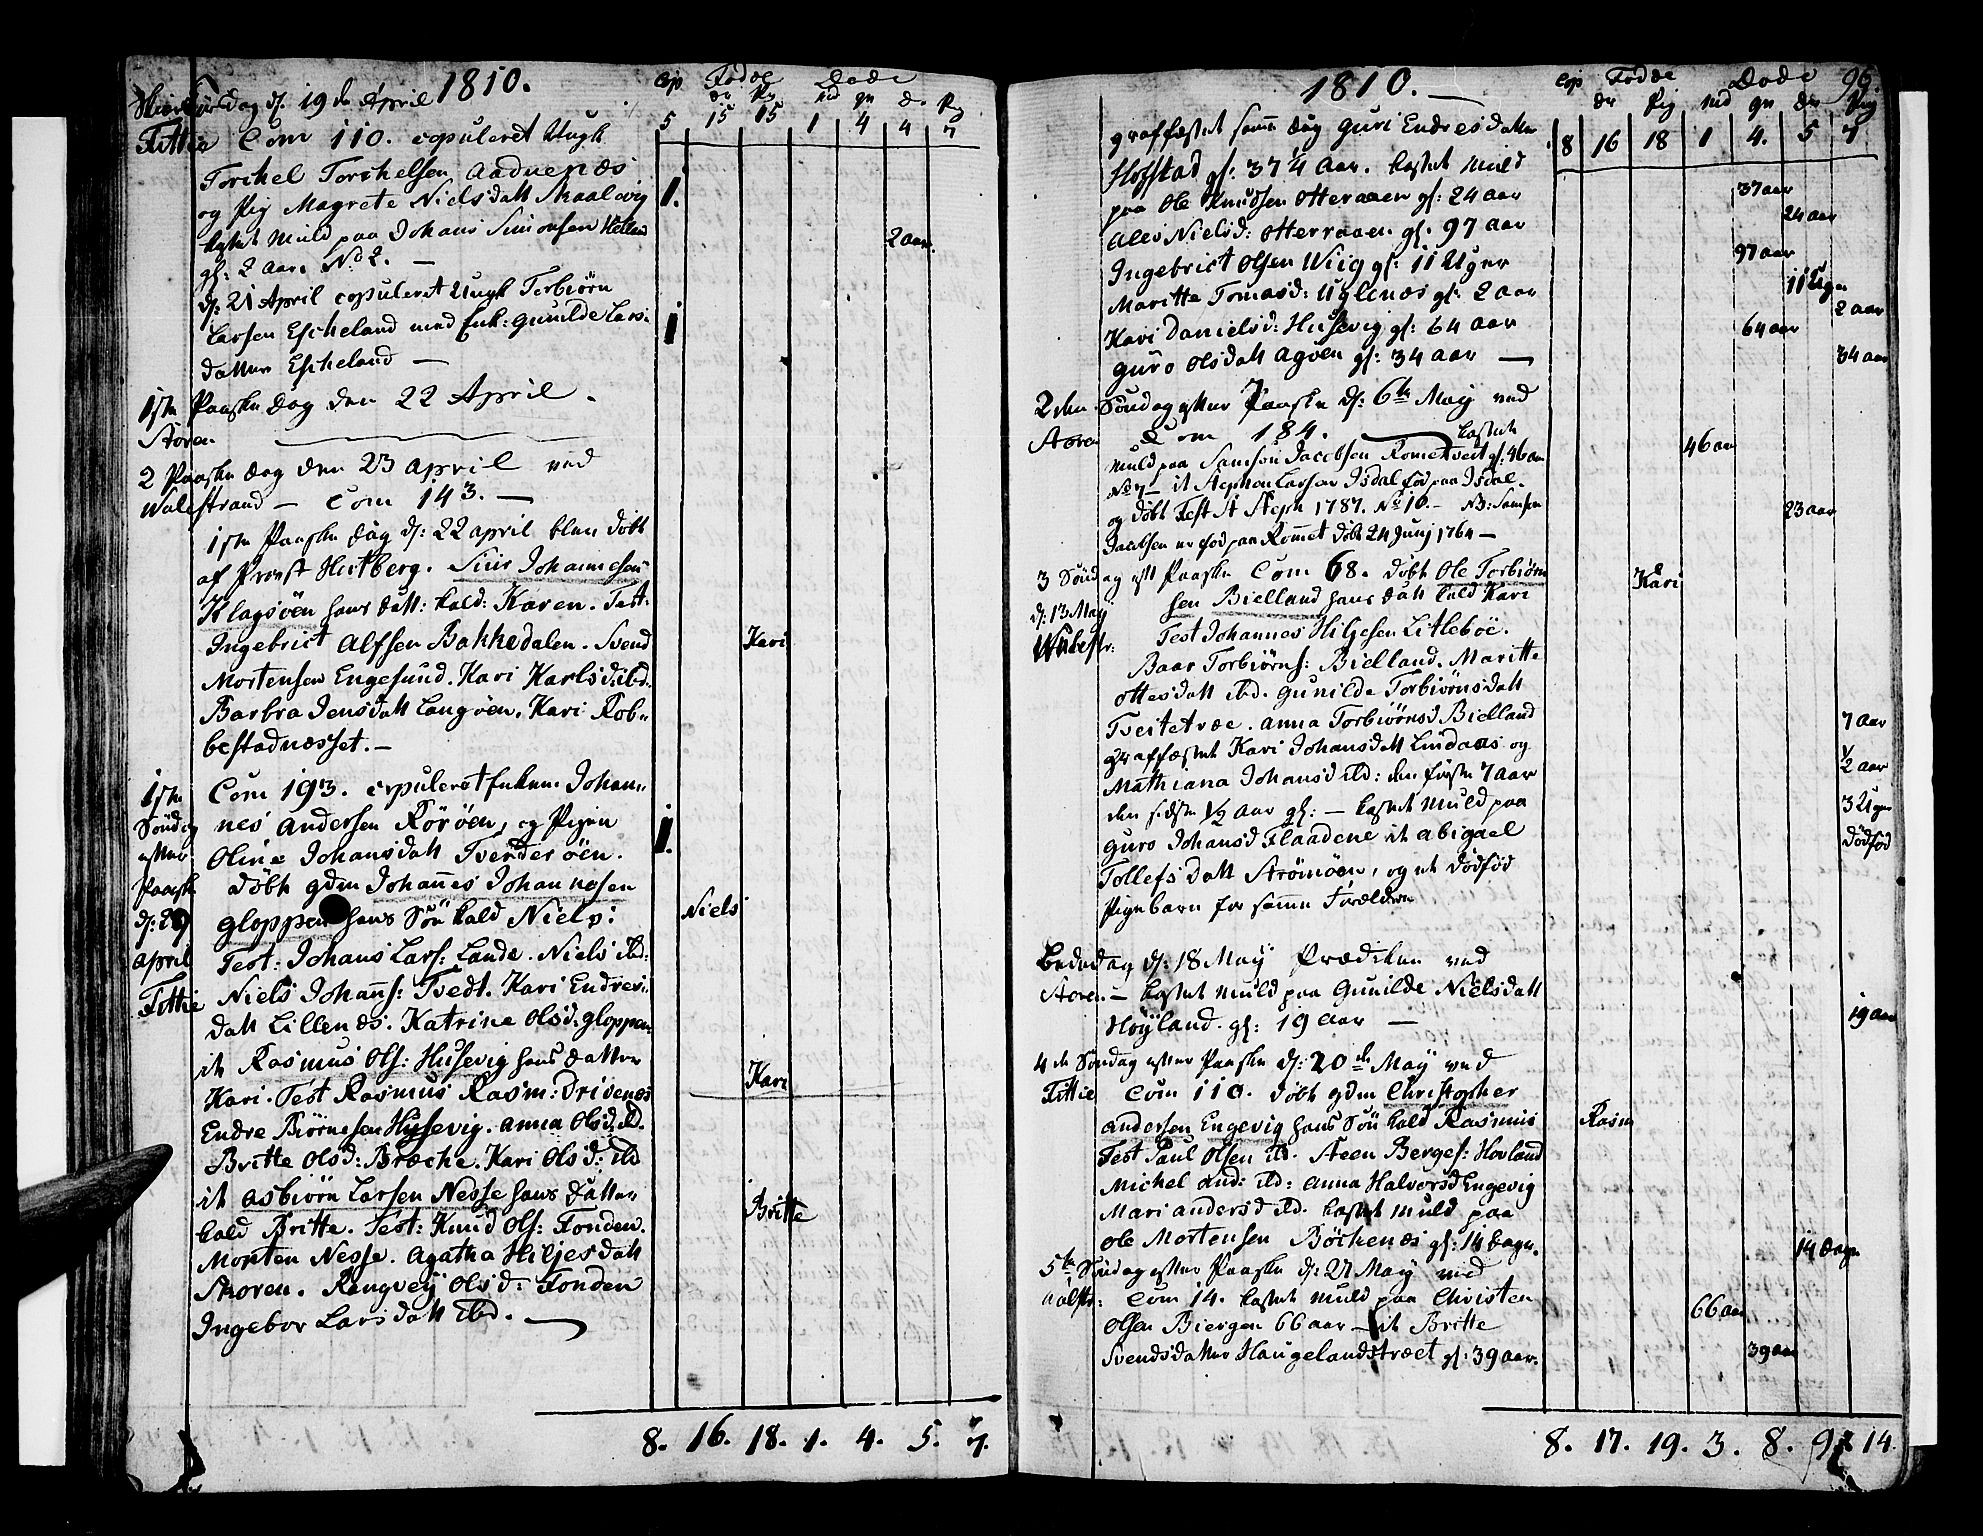 1810.
Skiærtorsdag d: 19de April
Fittie Com 110. copuleret Ungk
Torchel Torchelsen Aaduenæs
og Pig Magrete Nielsdatt Skaalevig
kastet Muld paa Johans Simonsen Helland
gl: 2 Aar. No 2. —
d: 21 April copuleret Ungk Torbiörn
Larsen Escheland med Enk: Gunilde Lars
datter Escheland —
1ste Paaske Dag den 22 April.
Storen
2 Paaske Dag den 23 April ved
Walestrand — Com 143. —
1ste Paaske Dag d: 22 April blev döbt
af Provst Hertberg. Siur Johannesen
Klagsöen hans datt: kald: Karen. Test:
Ingebrict Alfsen Bakkedalen. Svend
Mortensen Engesund. Kari Karlsd: ibd.
Barbra Jensdatt Langöen. Kari Rob-
bestadnesset. —
1ste Söndag efter Paaske d: 29 April Fittie
Com 193. copuleret Enkem: Johan-
nes Andersen Röröen, og Pigen
Oline Johansdatt Tverderöen.
döbt gdm Johannes Johannesen
Gloppen hans Sön kald Niels:
Test: Johans Lars: Lande. Niels ibd:
Niels Johans: Tvedt. Kari Endres-
datt Lillenæs. Katrine Olsd. Gloppen
it Rasmus Ols: Husevig hans datter
Kari. Test Rasmus Rasm: Drivenæs
Endre Biörnesen Husevig. Anna Olsd. ibd.
Britte Olsd: Bræche. Kari Olsd: ibd
it Asbiörn Larsen Nesse hans datter
kald Britte. Test: Knud Ols: Fonden.
Morten Nesse. Agatha Hiljesdatt
Skoren. Rangvej Olsd: Fonden
Ingebor Larsdatt ibd. —
Cop Födde Döde
Dr Pig Md Qv Dr Pig
5 15 15 1 4 4 7
1.
2 aar.
1
Kari
1.
Niels
Kari
Britte
8. 16. 18. 1. 4. 5. 7.
1810. —
96.
graffæstet samme dag Guri Endresdatter
Hofstad gl: 37 1/4 Aar. kastet Muld
paa Ole Knudsen Otteraaen gl: 24 aar
Ales Nielsd: Otterraaen gl: 97 aar
Ingebrict Olsen Wiig gl: 11 Uger
Maritte Tomasd: Uglenæs gl: 2 aar
Kari Danielsd: Husevig gl: 64 aar
Guro Olsdatt Agöen gl: 34 aar —
2den Söndag efter Paaske d: 6te May ved
Storen Com 184. — kastet
Muld paa Samson Jacobsen Rometveit gl: 46 aar
No 7 — it Stephen Larsen Isdal föd paa Isdal.
og döbt Fest St Steph 1787. No 10. — NB: Samson
Jacobsen er föd paa Rommet döbt 24 Junj 1764 —
3 Söndag eftr Paaske Com 68. döbt Ole Torbiörn-
d: 13 May sen Bielland hans datt kald Kari
Walestr: Test Johannes Hiljesen Litleböe.
Baar Torbiörns: Bielland. Maritte
Ottesdatt ibd. Gunilde Torbiörnsdatt
Tveitetræe. Anna Torbiörnsd Bielland
graffæstet Kari Johansdatt Lindaas og
Mathiana Johansd ibd: den förste 7 Aar
den sidste 1/2 Aar gl: — kastet Muld paa
Guro Johansd Flaadene it Abigael
Tollefsdatt Strömöen, og et dödföd
Pigebarn for samme Forældre
Bededag d: 18 May Prædiken ved
Storen — kastet Muld paa Gunilde Nielsdatt
Höyland. gl: 19 Aar —
4de Söndag efter Paaske d: 20de May ved
Fittie Com 110. döbt gdm Christopher
Andersen Engevig hans Sön kald Rasmus
Test Paul Olsen ibd. Steen Berges: Hovland
Michel And: ibd: Anna Halvorsd Engevig
Mari Andersd ibd. kastet Muld paa
Ole Mortensen Böchenæs gl: 14 Dage.
5te Söndag efter Paaske d: 27 May ved
Walestr: Com 14. kastet Muld paa Christen
Olsen Biergen 66 aar — it Britte
Svendsdatter Haugelandstræet gl: 39 aar.
Cop Födde Döde
Dr Pig Md Qv Dr Pig
8 16 18 1 4. 5 7
37 aar
24 aar
97 aar
11 Uger
2 aar
64 aar
34 aar
46 aar
23 aar
Kari
7 aar
1/2 aar
3 Uger
dödföd
19 aar
Rasm
14 Dage
66 aar
39 aar
8. 17. 19. 3. 8. 9. 14.